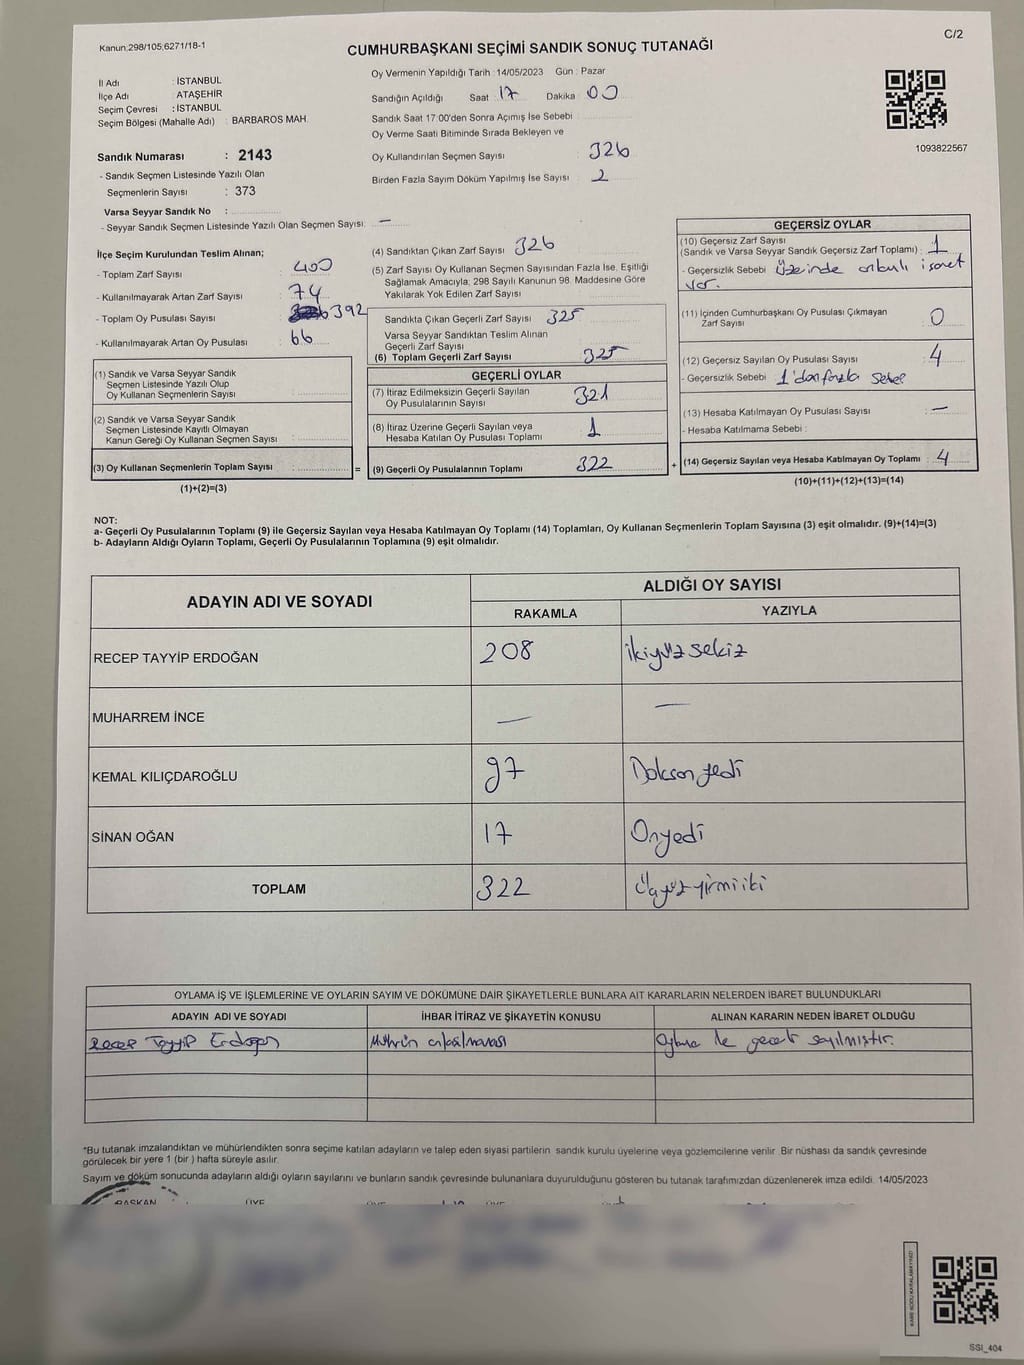 Kanun;298/105;6271/18-1
CUMHURBAŞKANI SEÇİMİ SANDIK SONUÇ TUTANAĞI
C/2
İl Adı : İSTANBUL
İlçe Adı : ATAŞEHİR
Seçim Çevresi : İSTANBUL
Seçim Bölgesi (Mahalle Adı) : BARBAROS MAH.
Oy Vermenin Yapıldığı Tarih : 14/05/2023 Gün : Pazar
Sandığın Açıldığı Saat : 17 Dakika : 00
Sandık Saat 17:00'den Sonra Açımış İse Sebebi :
Oy Verme Saati Bitiminde Sırada Bekleyen ve
Oy Kullandırılan Seçmen Sayısı : 326
Birden Fazla Sayım Döküm Yapılmış İse Sayısı : 2
1093822567
Sandık Numarası : 2143
- Sandık Seçmen Listesinde Yazılı Olan
Seçmenlerin Sayısı : 373
Varsa Seyyar Sandık No :
- Seyyar Sandık Seçmen Listesinde Yazılı Olan Seçmen Sayısı: —
İlçe Seçim Kurulundan Teslim Alınan;
- Toplam Zarf Sayısı : 400
- Kullanılmayarak Artan Zarf Sayısı : 74
- Toplam Oy Pusulası Sayısı : 392
- Kullanılmayarak Artan Oy Pusulası : 66
(1) Sandık ve Varsa Seyyar Sandık
Seçmen Listesinde Yazılı Olup
Oy Kullanan Seçmenlerin Sayısı :
(2) Sandık ve Varsa Seyyar Sandık
Seçmen Listesinde Kayıtlı Olmayan
Kanun Gereği Oy Kullanan Seçmen Sayısı :
(3) Oy Kullanan Seçmenlerin Toplam Sayısı : =
(1)+(2)=(3)
(4) Sandıktan Çıkan Zarf Sayısı : 326
(5) Zarf Sayısı Oy Kullanan Seçmen Sayısından Fazla İse, Eşitliği
Sağlamak Amacıyla; 298 Sayılı Kanunun 98. Maddesine Göre
Yakılarak Yok Edilen Zarf Sayısı :
Sandıkta Çıkan Geçerli Zarf Sayısı : 325
Varsa Seyyar Sandıktan Teslim Alınan
Geçerli Zarf Sayısı :
(6) Toplam Geçerli Zarf Sayısı : 325
GEÇERLİ OYLAR
(7) İtiraz Edilmeksizin Geçerli Sayılan
Oy Pusulalarının Sayısı : 321
(8) İtiraz Üzerine Geçerli Sayılan veya
Hesaba Katılan Oy Pusulası Toplamı : 1
(9) Geçerli Oy Pusulalarının Toplamı : 322 +
GEÇERSİZ OYLAR
(10) Geçersiz Zarf Sayısı
(Sandık ve Varsa Seyyar Sandık Geçersiz Zarf Toplamı) : 1
- Geçersizlik Sebebi : Üzerinde işaret
var.
(11) İçinden Cumhurbaşkanı Oy Pusulası Çıkmayan
Zarf Sayısı : 0
(12) Geçersiz Sayılan Oy Pusulası Sayısı : 4
- Geçersizlik Sebebi : 1'den fazla
(13) Hesaba Katılmayan Oy Pusulası Sayısı : —
- Hesaba Katılmama Sebebi :
(14) Geçersiz Sayılan veya Hesaba Katılmayan Oy Toplamı : 4
(10)+(11)+(12)+(13)=(14)
NOT:
a- Geçerli Oy Pusulalarının Toplamı (9) ile Geçersiz Sayılan veya Hesaba Katılmayan Oy Toplamı (14) Toplamları, Oy Kullanan Seçmenlerin Toplam Sayısına (3) eşit olmalıdır. (9)+(14)=(3)
b- Adayların Aldığı Oyların Toplamı, Geçerli Oy Pusulalarının Toplamına (9) eşit olmalıdır.
ADAYIN ADI VE SOYADI
ALDIĞI OY SAYISI
RAKAMLA YAZIYLA
RECEP TAYYİP ERDOĞAN 208 ikiyüz sekiz
MUHARREM İNCE — —
KEMAL KILIÇDAROĞLU 97 Doksan yedi
SİNAN OĞAN 17 Onyedi
TOPLAM 322 Üçyüz yirmi iki
OYLAMA İŞ VE İŞLEMLERİNE VE OYLARIN SAYIM VE DÖKÜMÜNE DAİR ŞİKAYETLERLE BUNLARA AİT KARARLARIN NELERDEN İBARET BULUNDUKLARI
ADAYIN ADI VE SOYADI İHBAR İTİRAZ VE ŞİKAYETİN KONUSU ALINAN KARARIN NEDEN İBARET OLDUĞU
Recep Tayyip Erdoğan Mührün Oylama ile geçerli sayılmıştır.
*Bu tutanak imzalandıktan ve mühürlendikten sonra seçime katılan adayların ve talep eden siyasi partilerin sandık kurulu üyelerine veya gözlemcilerine verilir. Bir nüshası da sandık çevresinde
görülecek bir yere 1 (bir ) hafta süreyle asılır.
Sayım ve döküm sonucunda adayların aldığı oyların sayılarını ve bunların sandık çevresinde bulunanlara duyurulduğunu gösteren bu tutanak tarafımızdan düzenlenerek imza edildi. 14/05/2023
BAŞKAN ÜYE ÜYE ÜYE
SSI_404